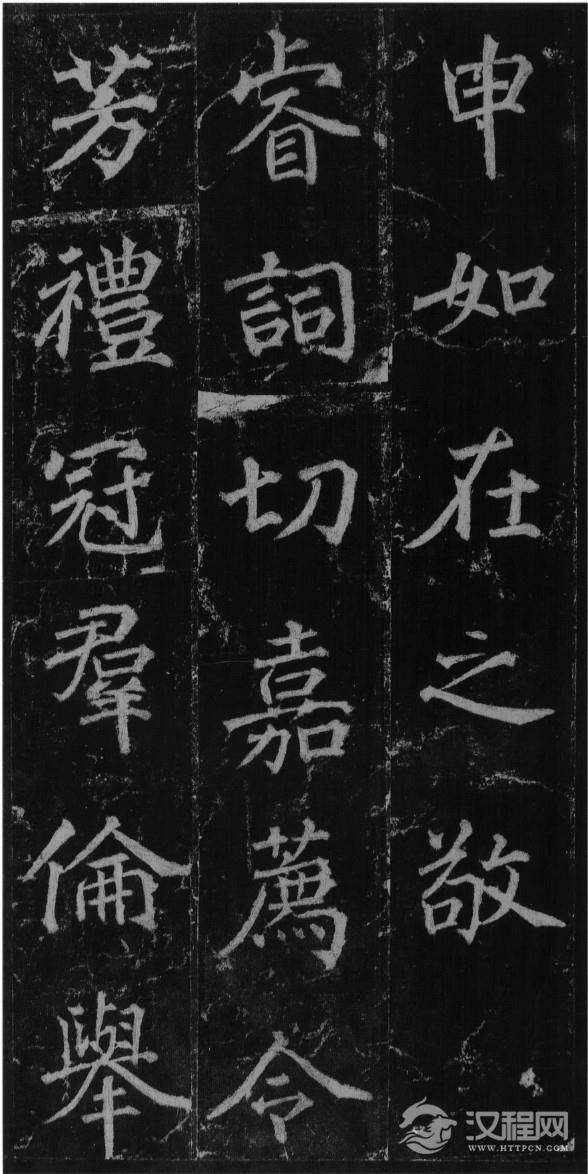 申如在之敬
睿詞切嘉薦令
芳禮冠羣倫舉
汉程网
WWW.HTTPCN.COM